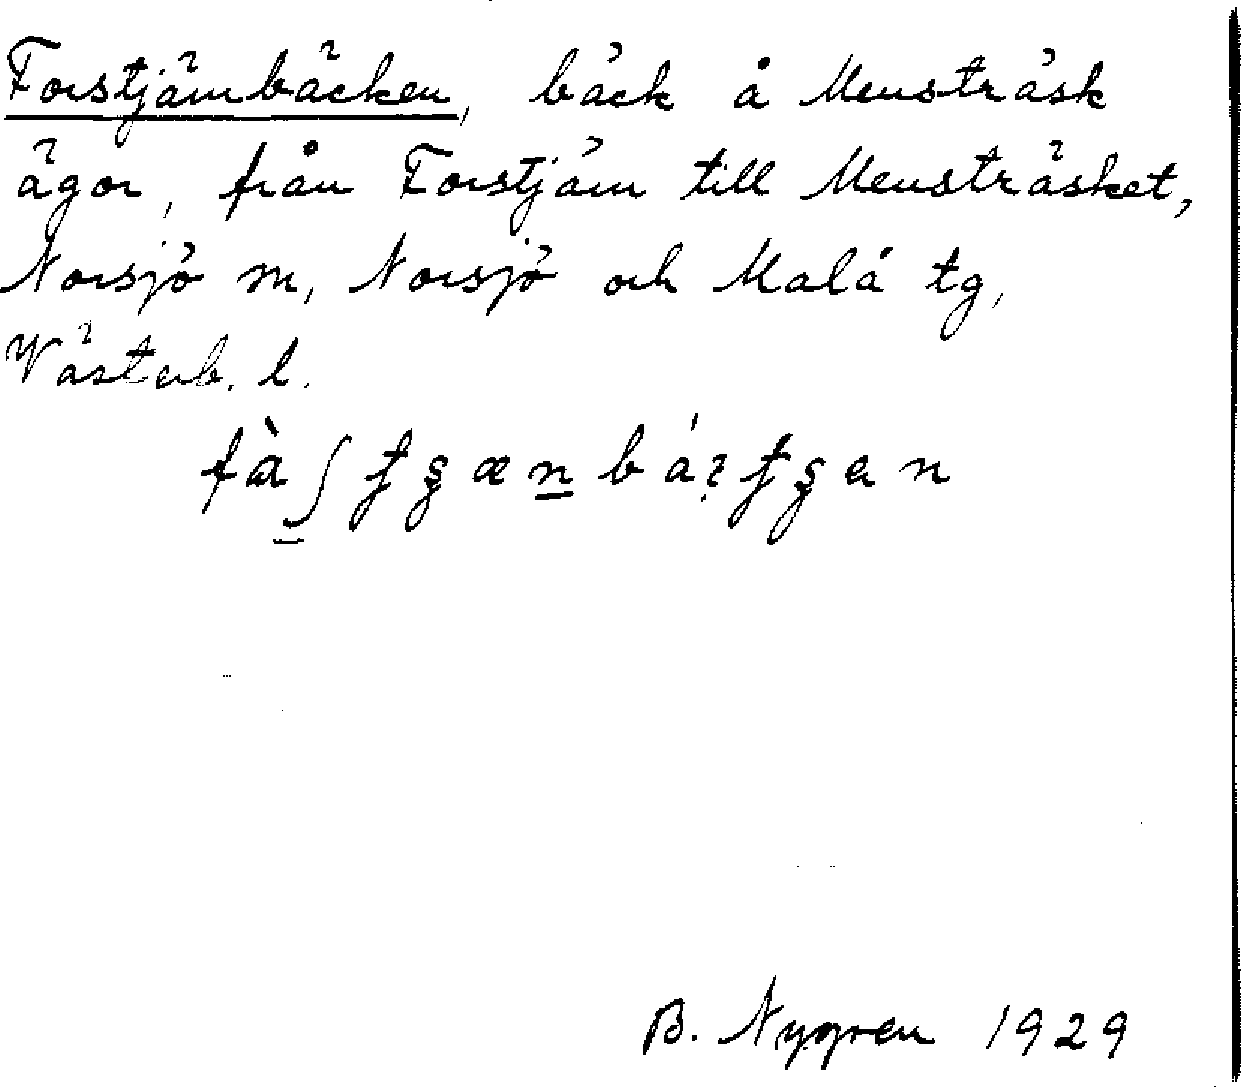 Forstjärnbäcken, bäck å Mensträsk
ägor, från Forstjärn till Mensträsket,
Norsjö sn, Norsjö och Malå tg,
Västerb. l.
B. Nygren 1929